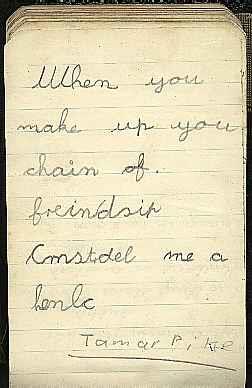 When you
make up you
chain of.
freindsip
Constdel me a
henlc
Tamar Pike